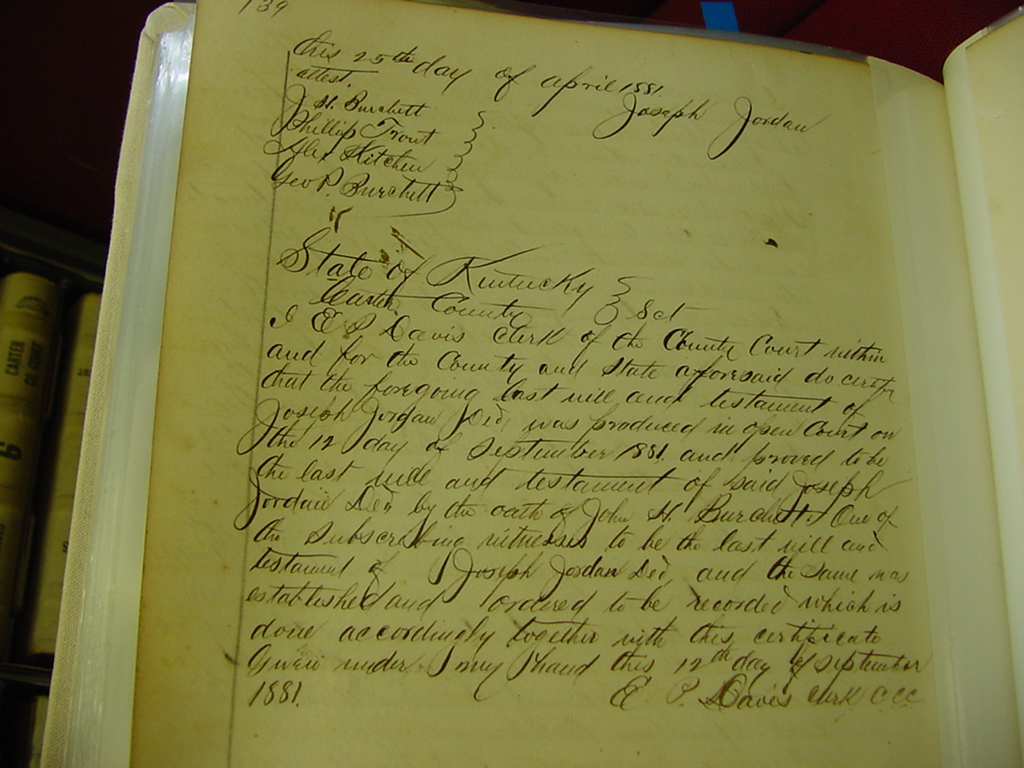 139
this 25th day of April 1881.
attest Joseph Jordan
J. H. Burchett
Phillip Trout
Geo. R. Burchett
State of Kentucky
County Sct
I E S Davis Clerk of the County Court within
and for the County and State aforesaid do certify
that the foregoing last will and testament of
Joseph Jordan Decd was produced in open Court on
the 12 day of September 1881. and proved to be
the last will and testament of said Joseph
Jordan Decd by the oath of John H Burchett One of
the subscribing witnesses to be the last will and
testament of Joseph Jordan Decd and the same was
established and ordered to be recorded which is
done accordingly together with this certificate
Given under my Hand this 12th day of September
1881. E S Davis Clerk CCC
6
CARTER
CO. COURT